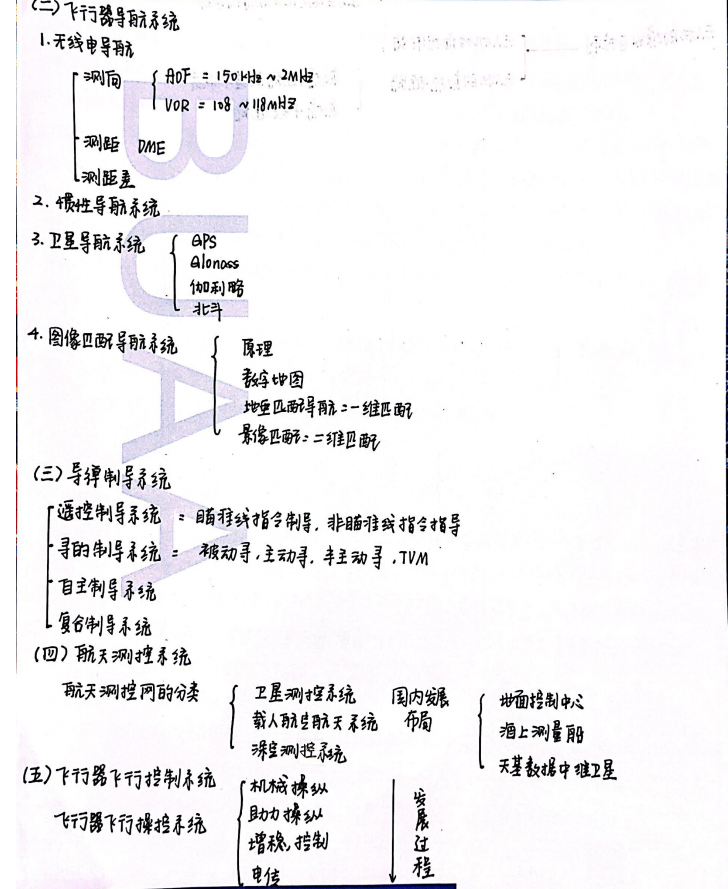 (二)飞行器导航系统
1.无线电导航
测向 ADF = 150kHz ~ 2MHz
VOR = 108 ~ 118MHz
测距 DME
测距差
2.惯性导航系统
3.卫星导航系统 GPS
Glonass
伽利略
北斗
4.图像匹配导航系统 原理
数字地图
地面匹配导航=一维匹配
景像匹配=二维匹配
(三)导弹制导系统
遥控制导系统 = 瞄准线指令制导,非瞄准线指令指导
寻的制导系统 = 被动寻,主动寻,半主动寻,TVM
自主制导系统
复合制导系统
(四)航天测控系统
航天测控网的分类 卫星测控系统 国内发展布局 地面控制中心
载人航空航天系统 海上测量船
深空测控系统 天基数据中继卫星
(五)飞行器飞行控制系统 机械操纵
飞行器飞行操控系统 助力操纵 发展过程
增稳,控制
电传
BUAA